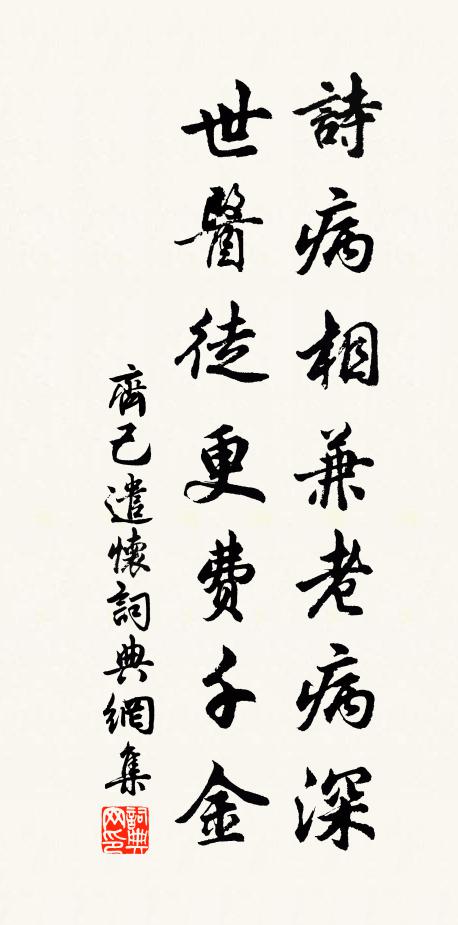 詩病相兼老病深
世醫徒更費千金
齊己遣懷詞典網集
詞典網印